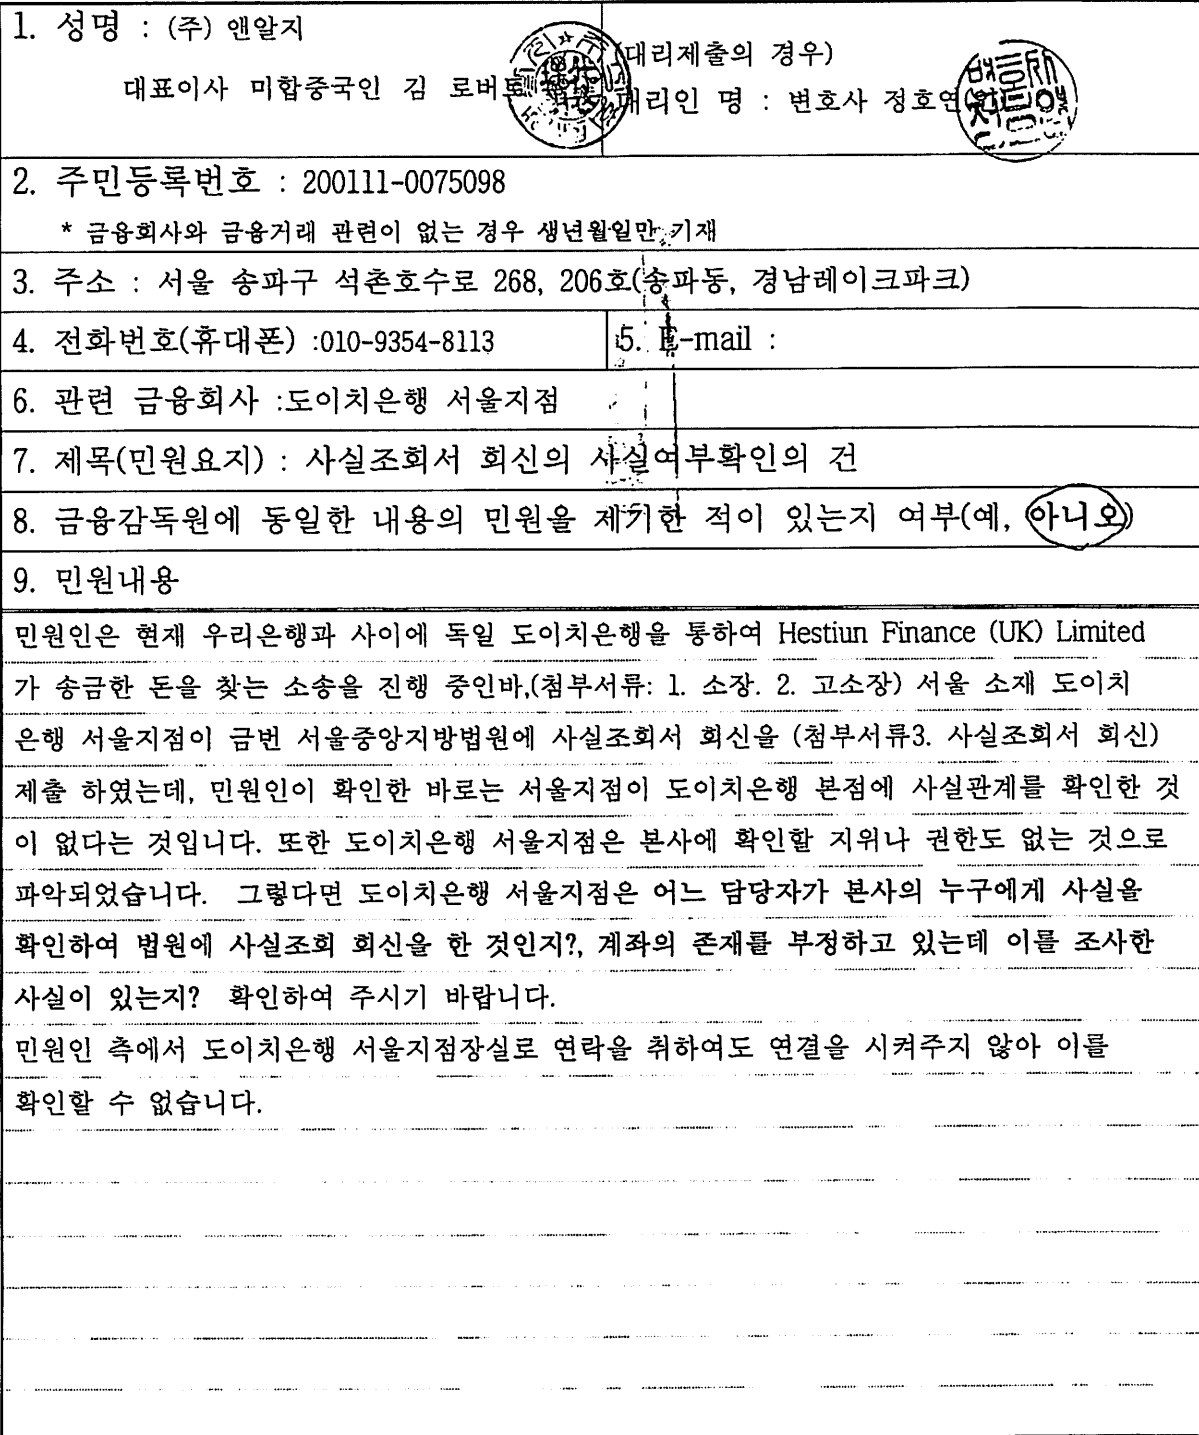 1. 성명 : (주) 앤알지
대표이사 미합중국인 김 로버트
(대리제출의 경우)
대리인 명 : 변호사 정호연
2. 주민등록번호 : 200111-0075098
* 금융회사와 금융거래 관련이 없는 경우 생년월일만 기재
3. 주소 : 서울 송파구 석촌호수로 268, 206호(송파동, 경남레이크파크)
4. 전화번호(휴대폰) :010-9354-8113
5. E-mail :
6. 관련 금융회사 :도이치은행 서울지점
7. 제목(민원요지) : 사실조회서 회신의 사실여부확인의 건
8. 금융감독원에 동일한 내용의 민원을 제기한 적이 있는지 여부(예, 아니오)
9. 민원내용
민원인은 현재 우리은행과 사이에 독일 도이치은행을 통하여 Hestiun Finance (UK) Limited
가 송금한 돈을 찾는 소송을 진행 중인바,(첨부서류: 1. 소장. 2. 고소장) 서울 소재 도이치
은행 서울지점이 금번 서울중앙지방법원에 사실조회서 회신을 (첨부서류3. 사실조회서 회신)
제출 하였는데, 민원인이 확인한 바로는 서울지점이 도이치은행 본점에 사실관계를 확인한 것
이 없다는 것입니다. 또한 도이치은행 서울지점은 본사에 확인할 지위나 권한도 없는 것으로
파악되었습니다. 그렇다면 도이치은행 서울지점은 어느 담당자가 본사의 누구에게 사실을
확인하여 법원에 사실조회 회신을 한 것인지?, 계좌의 존재를 부정하고 있는데 이를 조사한
사실이 있는지? 확인하여 주시기 바랍니다.
민원인 측에서 도이치은행 서울지점장실로 연락을 취하여도 연결을 시켜주지 않아 이를
확인할 수 없습니다.